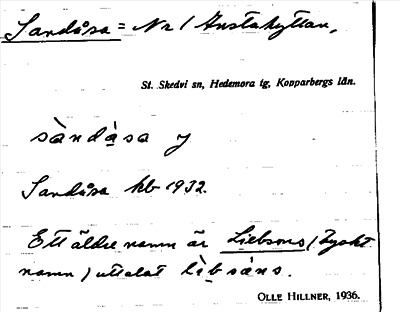 Sandåsa = Nr 1 Anstahyttan,
St. Skedvi sn, Hedemora tg, Kopparbergs län.
sàndåsa y
Sandåsa kb 1932.
Ett äldre namn är Liebsens (Tyskt
namn) uttalat lìbsèns.
OLLE HILLNER, 1936.